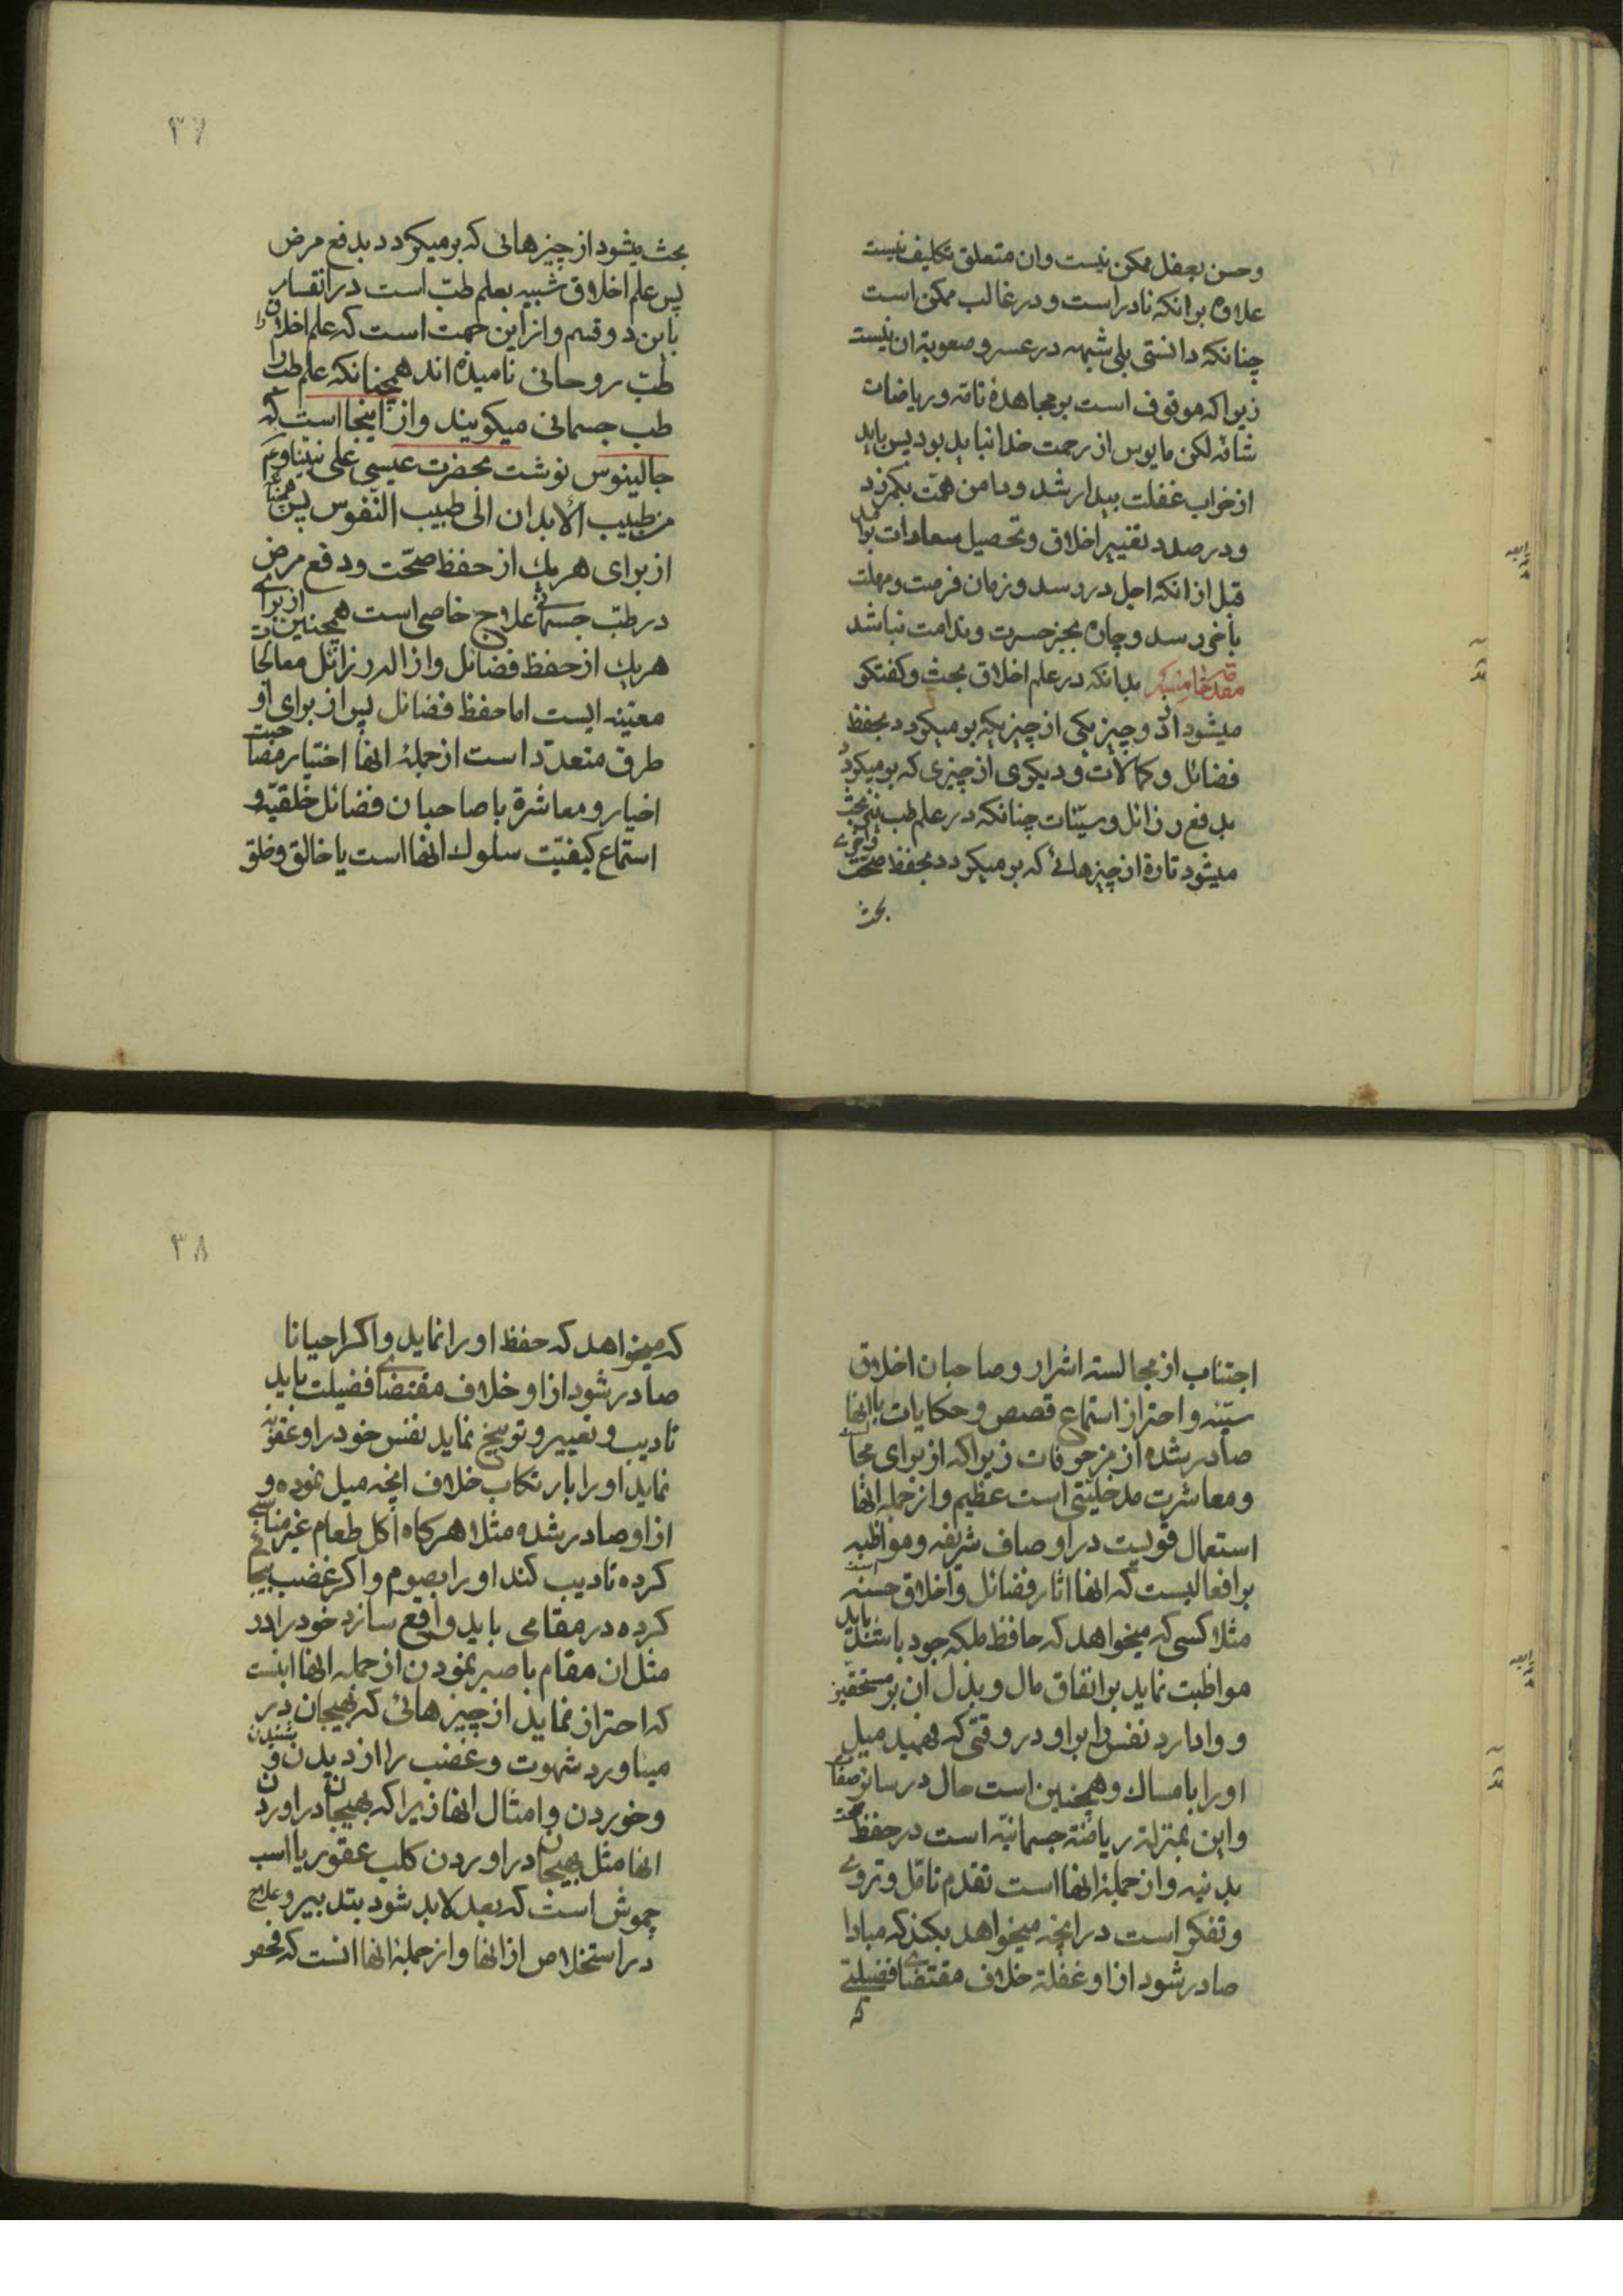 وحسن بعقل ممکن نیست وان متعلق تکلیف نیست
علاوه برانکه نادر است و در غالب ممکن است
چنانکه دانستی بلی شبهه در عسر و صعوبة ان نیست
زیراکه موقوف است بر مجاهدهٔ تامّه و ریاضات
شاقّه لکن مایوس از رحمت خدا نباید بود پس باید
از خواب غفلت بیدار شد و دامن همّت بکمر زد
و در صدد تغییر اخلاق و تحصیل سعادات برامد
قبل از انکه اجل در رسد و زمان فرصت و مهلت
باخر رسد و چاره بجز حسرت و ندامت نباشد
مقدمه خامسه بدانکه در علم اخلاق بحث و کفتکو
میشود از دو چیز یکی از چیزیکه بر میکردد بحفظ
فضائل و کمالات و دیکری از چیزی که بر میکردد
بدفع رذائل و سیّئات چنانکه در علم طب نیز بحث
میشود تارة از چیزهائی که بر میکردد بحفظ صحّت و اخری
بحث
۳۷
بحث میشود از چیزهائی که بر میکردد بدفع مرض
پس علم اخلاق شبیه بعلم طبّ است در انقسام
باین دو قسم و از این جهت است که علم اخلاق را
طبّ روحانی نامیده اند همچنانکه علم طب را
طب جسمانی میکویند و از اینجا است که
جالینوس نوشت بحضرت عیسی علی نبیّنا و عم
من طبیب الأبدان الی طبیب النّفوس پس همچنانکه
از برای هر یك از حفظ صحّت و دفع مرض
در طبّ جسمانی علاج خاصی است همچنین از برای
هر یك از حفظ فضائل و ازاله رزائل معالجات
معیّنه ایست اما حفظ فضائل پس از برای او
طرق متعدّد است از جملهٔ انها اختیار مصاحبت
اخیار و معاشرة با صاحبان فضائل خلقیّه و
استماع کیفیّت سلوك انها است با خالق و خلق
اجتناب از مجالسته اشرار و صاحبان اخلاق
سیّئه و احتراز استماع قصص و حکایات با انها
صادر شده از مزخرفات زیراکه از برای مجالست
و معاشرت مدخلیّتی است عظیم و از جمله انها
استعمال قویست در اوصاف شریفه و مواظبه
بر افعالیست که انها اثار فضائل و اخلاق حسنه است
مثلا کسی که میخواهد که حافظ ملکه جود باشد باید
مواظبت نماید بر انفاق مال و بذل ان بر مستحقین
و وادارد نفس را بر او در وقتی که فهمید میل
او را بامساك و همچنین است حال در سائر صفات
و این بمنزلة ریاضة جسمانیّه است در حفظ صحّت
بدنیه و از جملهٔ انها است تقدم تامّل و تروی
و تفکر است در انچه میخواهد بکند که مبادا
صادر شود از او غفلة خلاف مقتضای فضیلتی
که
۳۸
که میخواهد که حفظ او را نماید و اکر احیانا
صادر شود از او خلاف مقتضای فضیلت باید
تادیب و تعییر و توبیخ نماید نفس خود را و عقوبة
نماید او را بارتکاب خلاف انچه میل نموده و
از او صادر شده مثلا هرکاه اکل طعام غیر مناسبی
کرده تادیب کند او را بصوم و اکر غضب بیجائی
کرده در مقامی باید واقع سازد خود را در
مثل ان مقام با صبر نمودن از جمله انها اینست
که احتراز نماید از چیزهائی که بهیجان در
میناورد شهوت و غضب را از دیدن و شنیدن
و خوردن و امثال انها زیراکه بهیجان در اوردن
انها مثل بهیجان در اوردن کلب عقور یا اسب
چموش است که بعد لابد شود بتدبیر و علاج
در استخلاص از انها و از جملهٔ انها انست که فحص